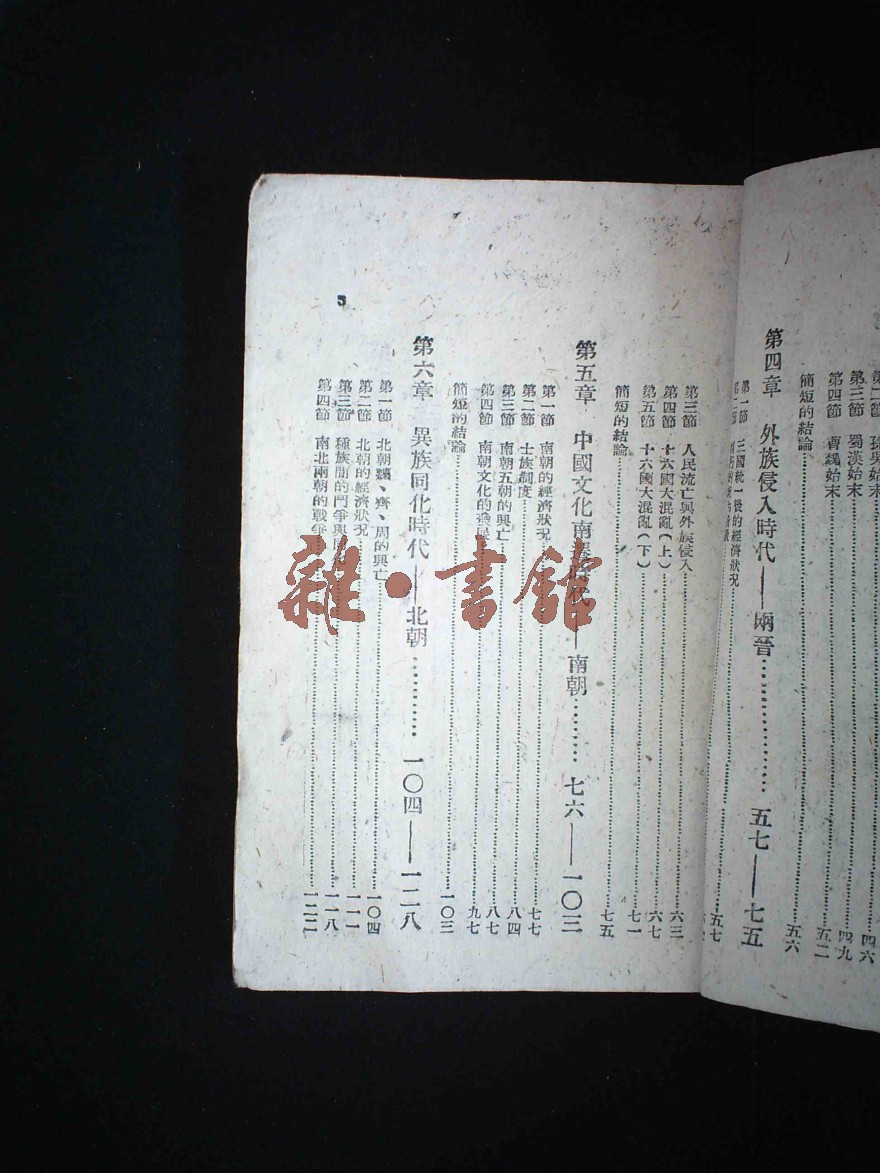 第二節
始末
四六
第三節 蜀漢始末
四九
第四節 曹魏始末
五二
簡短的結論
五六
第四章 外族侵入時代——兩晉
五七——七五
第一節 三國統一後的經濟狀況
五七
第三節 人民流亡與外族侵入
六三
第四節 十六國大混亂(上)
六七
第五節 十六國大混亂(下)
七一
簡短的結論
七五
第五章 中國文化南
代——南朝
七六——一〇三
第一節 南朝的經濟狀況
七七
第二節 士族制度
八四
第三節 南朝五朝的興亡
八七
第四節 南朝文化的發展
九七
簡短的結論
一〇三
第六章 異族同化時代——北朝
一〇四——一二八
第一節 北朝魏、齊、周的興亡
一〇四
第二節 北朝的經濟狀況
一一一
第三節 種族間的鬥爭與
一一八
第四節 南北兩朝的戰爭
一二二
5
雜·書館